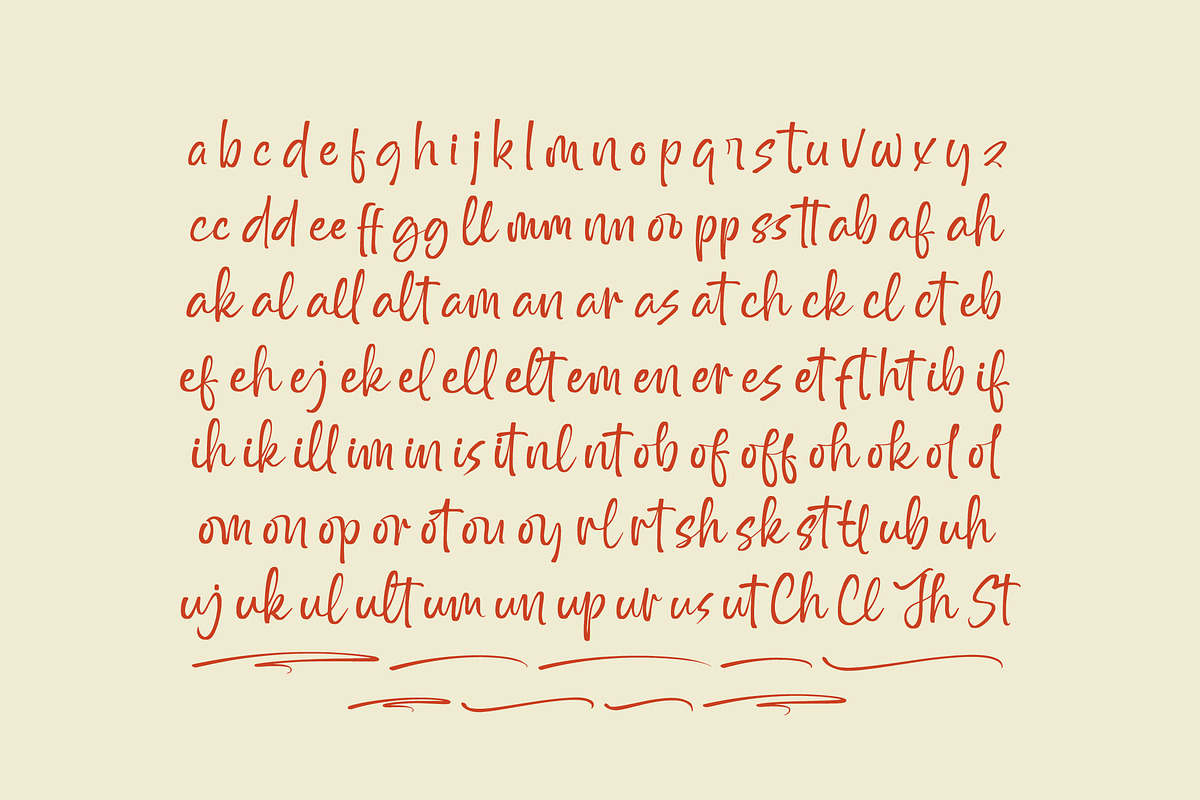 a b c d e f g h i j k l m n o p q r s t u v w x y z
cc dd ee ff gg ll mm nn oo pp ss tt ab af ah
ak al all alt am an ar as at ch ck cl ct eb
ef eh ej ek el ell elt em en er es et ft ht ib if
ih ik ill im in is it nl nt ob of off oh ok ol ol
om on op or ot ou oy rl rt sh sk st tl ub uh
uj uk ul ult um un up ur us ut Ch Cl Th St